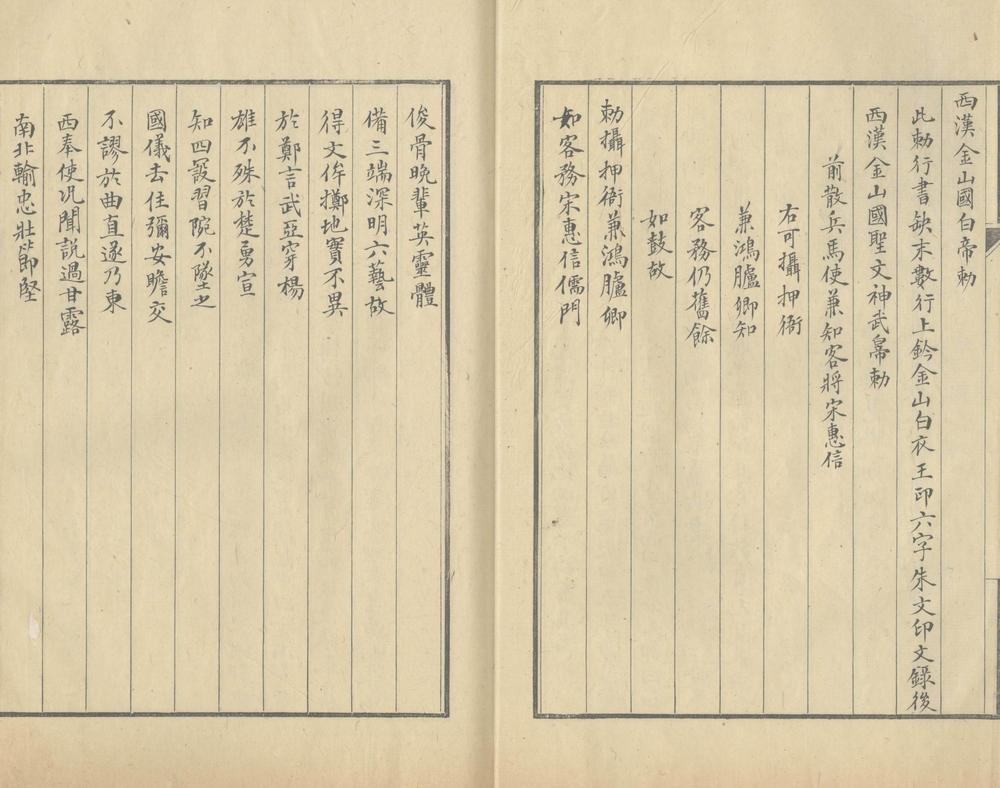 西漢金山國白帝勅
此勅行書缺末數行上鈐金山白衣王印六字朱文印文錄後
西漢金山國聖文神武帛勅
前散兵馬使兼知客將宋惠信
右可攝押衙
兼鴻臚卿知
客務仍舊餘
如鼓故
勅攝押衙兼鴻臚卿
知客務宋惠信儒門
俊骨晚輩英靈體
備三端深明六藝故
得文侔擲地寳不異
於鄭言武亞穿楊
雄不殊於楚勇宣
知四設習院不墜之
國儀去住彌安瞻交
不謬於曲直遂乃東
西奉使況聞説過甘露
南北輸忠壯節堅